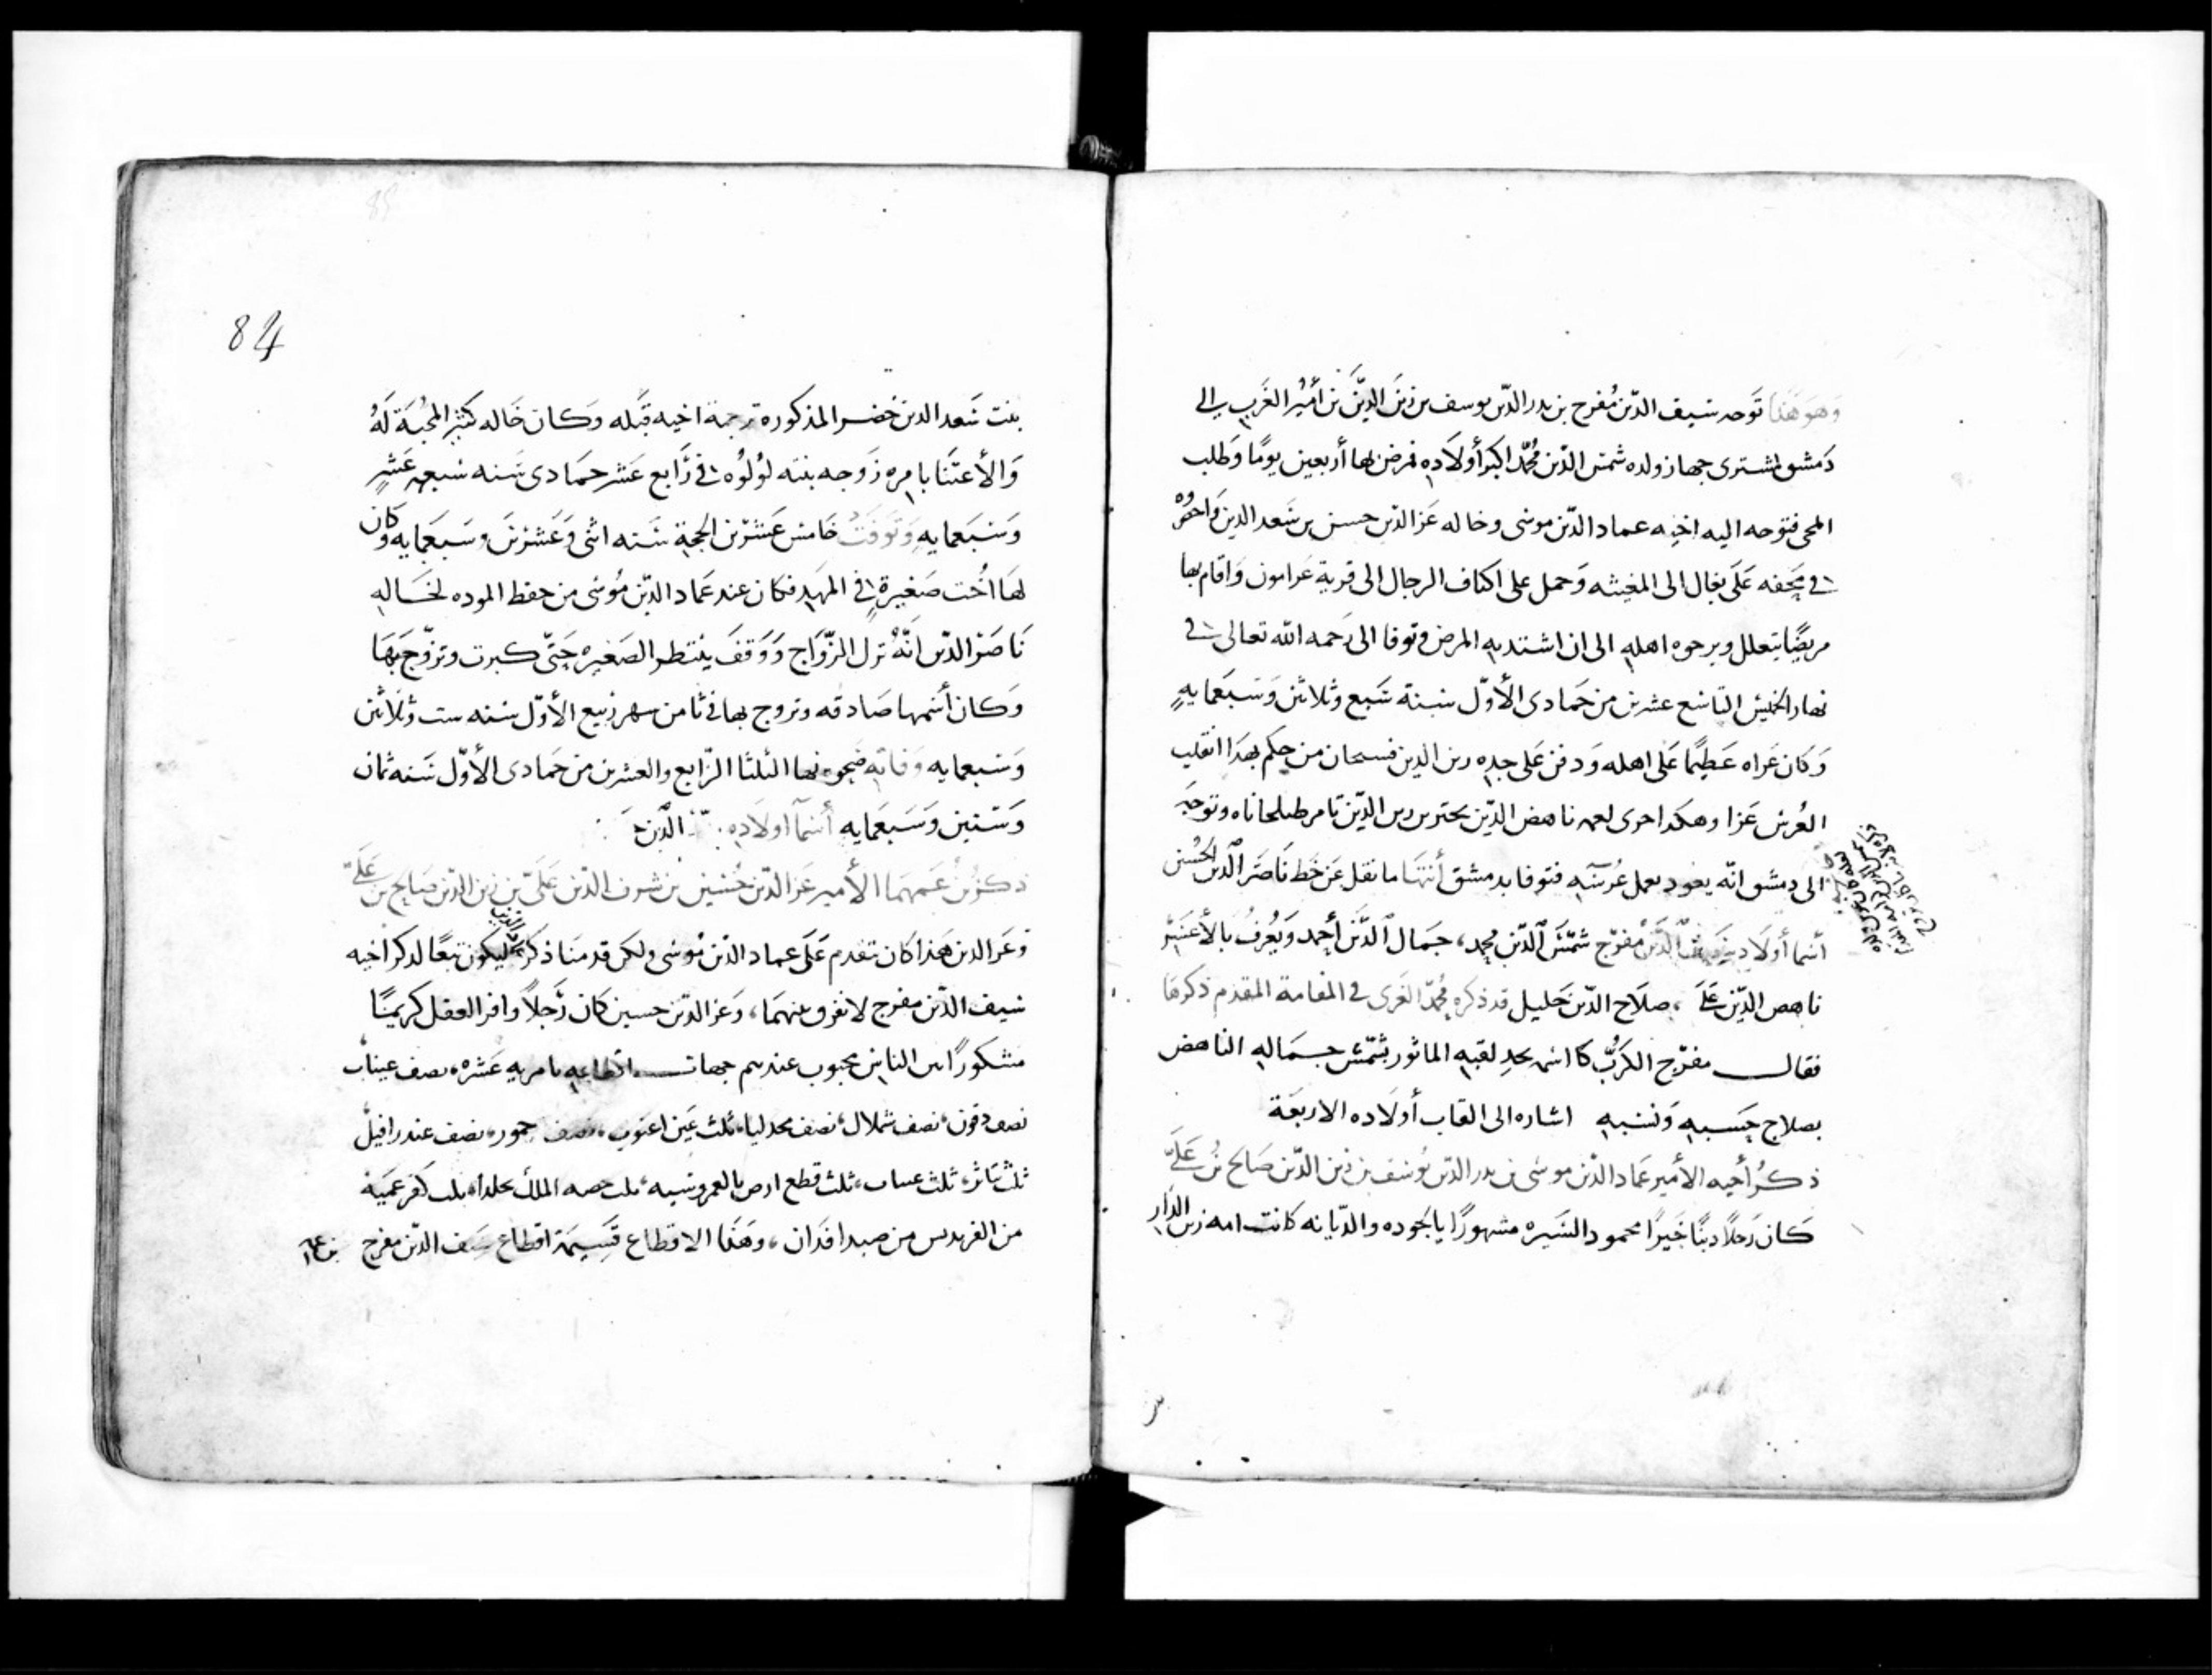 وهو هَذا توَجه سَيف الدّين مُفرج بن بدر الدّين يوسف بن زين الدّين بن أمير الغرب الى
دَمشق لمشترى جهاز ولده شمس الدّين مُحمّد اكبر أولاده فمرض بها أربعين يومًا وطلب
المجى فتوجه اليه اخيه عماد الدّين موسى وخاله عز الدّين حسن بن سَعد الدين واحضروه
في محفه عَلى بغال الى المغيثه وَحمل على اكتاف الرجال الى قرية عرامون وَاقام بها
مريضًا يتعلل ويرجوه اهله الى ان اشتد به المرض وتوفا الى رَحمه الله تعالى في
نهار الخميس التاسع عشرين من جَمادى الأوّل سنة سَبع وثلاثين وَسَبعَمايهِ
وَكان عزاه عَظيمًا عَلى اهله وَدفن عَلى جده زين الدين فسبحان من حكم بهذا انقلب
العُرس عَزا وهكدا جرى لعمه ناهض الدّين بحتر بن زين الدّين تامر طبلخاناه وتوجّه
الى دمشق انّه يعود يعمل عُرسَه فتوفا بدمشق أنتهَا ما نقل عَن خَط نَاصَر الدين الحسين
أسما أولاد سَيف الدّين مفرّج شمْسَ الدّين محمد، جمَال الدّين أحمد وَيُعرفُ بالأعسَر
ناهض الدّين عَلى، صلاح الدّين خليل قد ذكره مُحمّد الغَزى في المقامة المقدم ذكرهَا
فقال مفرّج الكَربُ كا اسْمه يجد لقبه الماثور شمْس جماله الناهض
بصلاح حَسَبه وَنسَبهِ اشاره الى القاب أولَاده الاربعَة
ذكرُ أخيه الأمير عمَاد الدّين موسى بن بدر الدّين يُوسَف بن زين الدّين صَالح بنُ عَلى
كان رَجلًا دينًا خَيرًا محمود السَيره مشهورًا بالجوده والدّيانه كانت امه زين الدَار
84
بنت سَعد الدين خضر المذكوره ترجمة اخيه قبَله وَكان خَاله كثير المحبَة لَهُ
وَالأعتنَا بامره زوَجه بنته لؤلؤه في رَابع عَشر جمَادى سَنه سَبعه عَشر
وَسَبعَمايهِ وَتوَفت خَامس عَشرين الحجة سَنه اثنى وَعَشرين وسَبعمَايه وكان
لهَا اُخت صَغيرة في المهَد فكان عند عمَاد الدّين مُوسى من حفظ الموده لخَاله
نَاصَر الدّين انّهُ ترك الزّواج وَوَقفَ ينتظر الصَغيره حَتّى كبرت وتزوّج بَهَا
وَكان أسمها صَادقه وتزوج بها في ثامن شهر رَبيع الأوّل سَنه ست وثلَاثين
وَسَبعمايه وَفاته ضحوه نهار الثلثا الرّابع والعشرين من جَمادى الأوّل سَنه ثمان
وَسَتين وَسَبعَمايه أسْمآ اولاده الدّين
ذكرُ بنُ عَمهمَا الأمير عَز الدّين حُسَين بن شرف الدّين عَلى بن زين الدّين صَالح بن عَلى
وَعَز الدين هَذا كان تقدم عَلى عماد الدّين مُوسى ولكن قدمنَا ذكره ليكون تبعًا لدكر اخيه
سَيف الدّين مفرج لا نفرق بينهمَا، وَعز الدّين حسين كان رَجلًا وافر العقل كريمًا
مشكورًا بين الناس محبوب عندهم جهات اقطاعه بامريه عَشره، نصف عيناب
نصف دفون، نصف شملال، نصف مجدليا، ثلث عين اعنوب، نصف حمور، نصف عندرافيل
ثلث بَاثر، ثلث عيناب، ثلث قطع ارض بالعمروسَيه، ثلث حصه الملك بخلدا، ثلث كفر عَميه
من الفريديس من صيدا فدَان، وهَذا الاقطاع قَسِيمَة اقطاع سَيف الدّين مفرج بن عمّه